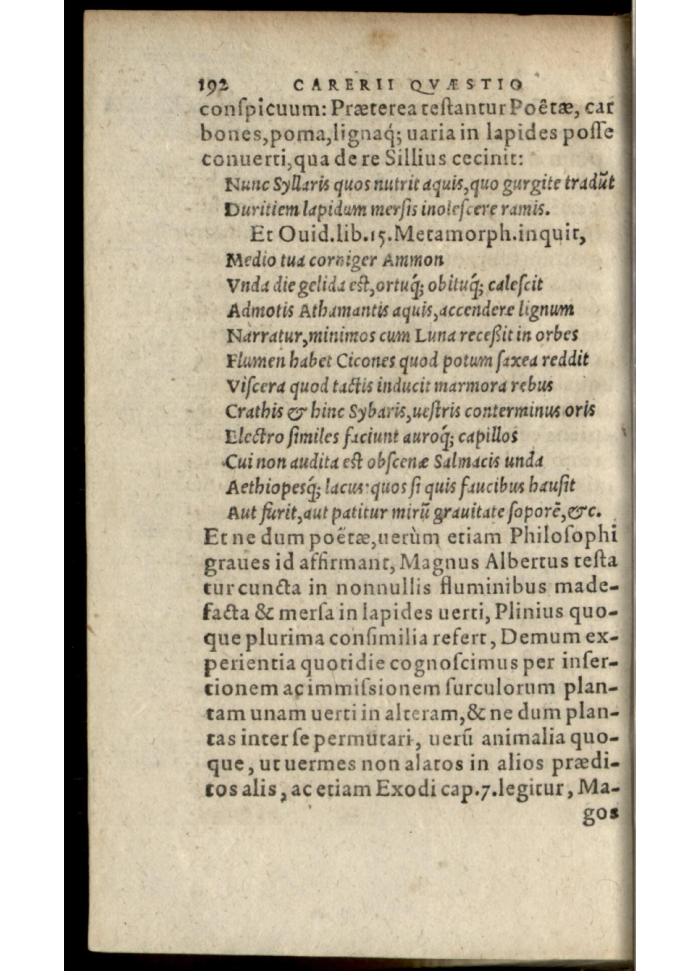 192 CARERII QVÆSTIO
conſpicuum: Præterea teſtantur Poêtæ, car
bones, poma, lignaq́; uaria in lapides poſſe
conuerti, qua de re Sillius cecinit:
Nunc Syllaris quos nutrit aquis, quo gurgite tradũt
Duritiem lapidum merſis inoleſcere ramis.
Et Ouid. lib. 15. Metamorph. inquit,
Medio tua corniger Ammon
Vnda die gelida eſt, ortuq́; obituq́; caleſcit
Admotis Athamantis aquis, accendere lignum
Narratur, minimos cum Luna receßit in orbes
Flumen habet Cicones quod potum ſaxea reddit
Viſcera quod tactis inducit marmora rebus
Crathis & hinc Sybaris, ueſtris conterminus oris
Electro ſimiles faciunt auroq́; capillos
Cui non audita eſt obſcenæ Salmacis unda
Aethiopesq́; lacus quos ſi quis faucibus hauſit
Aut furit, aut patitur mirũ grauitate ſoporẽ, &c.
Et ne dum poêtæ, uerùm etiam Philoſophi
graues id affirmant, Magnus Albertus teſta
tur cuncta in nonnullis fluminibus made-
facta & merſa in lapides uerti, Plinius quo-
que plurima conſimilia refert, Demum ex-
perientia quotidie cognoſcimus per inſer-
tionem ac immiſsionem ſurculorum plan-
tam unam uerti in alteram, & ne dum plan-
tas inter ſe permutari, uerũ animalia quo-
que, ut uermes non alatos in alios prædi-
tos alis, ac etiam Exodi cap. 7. legitur, Ma-
gos